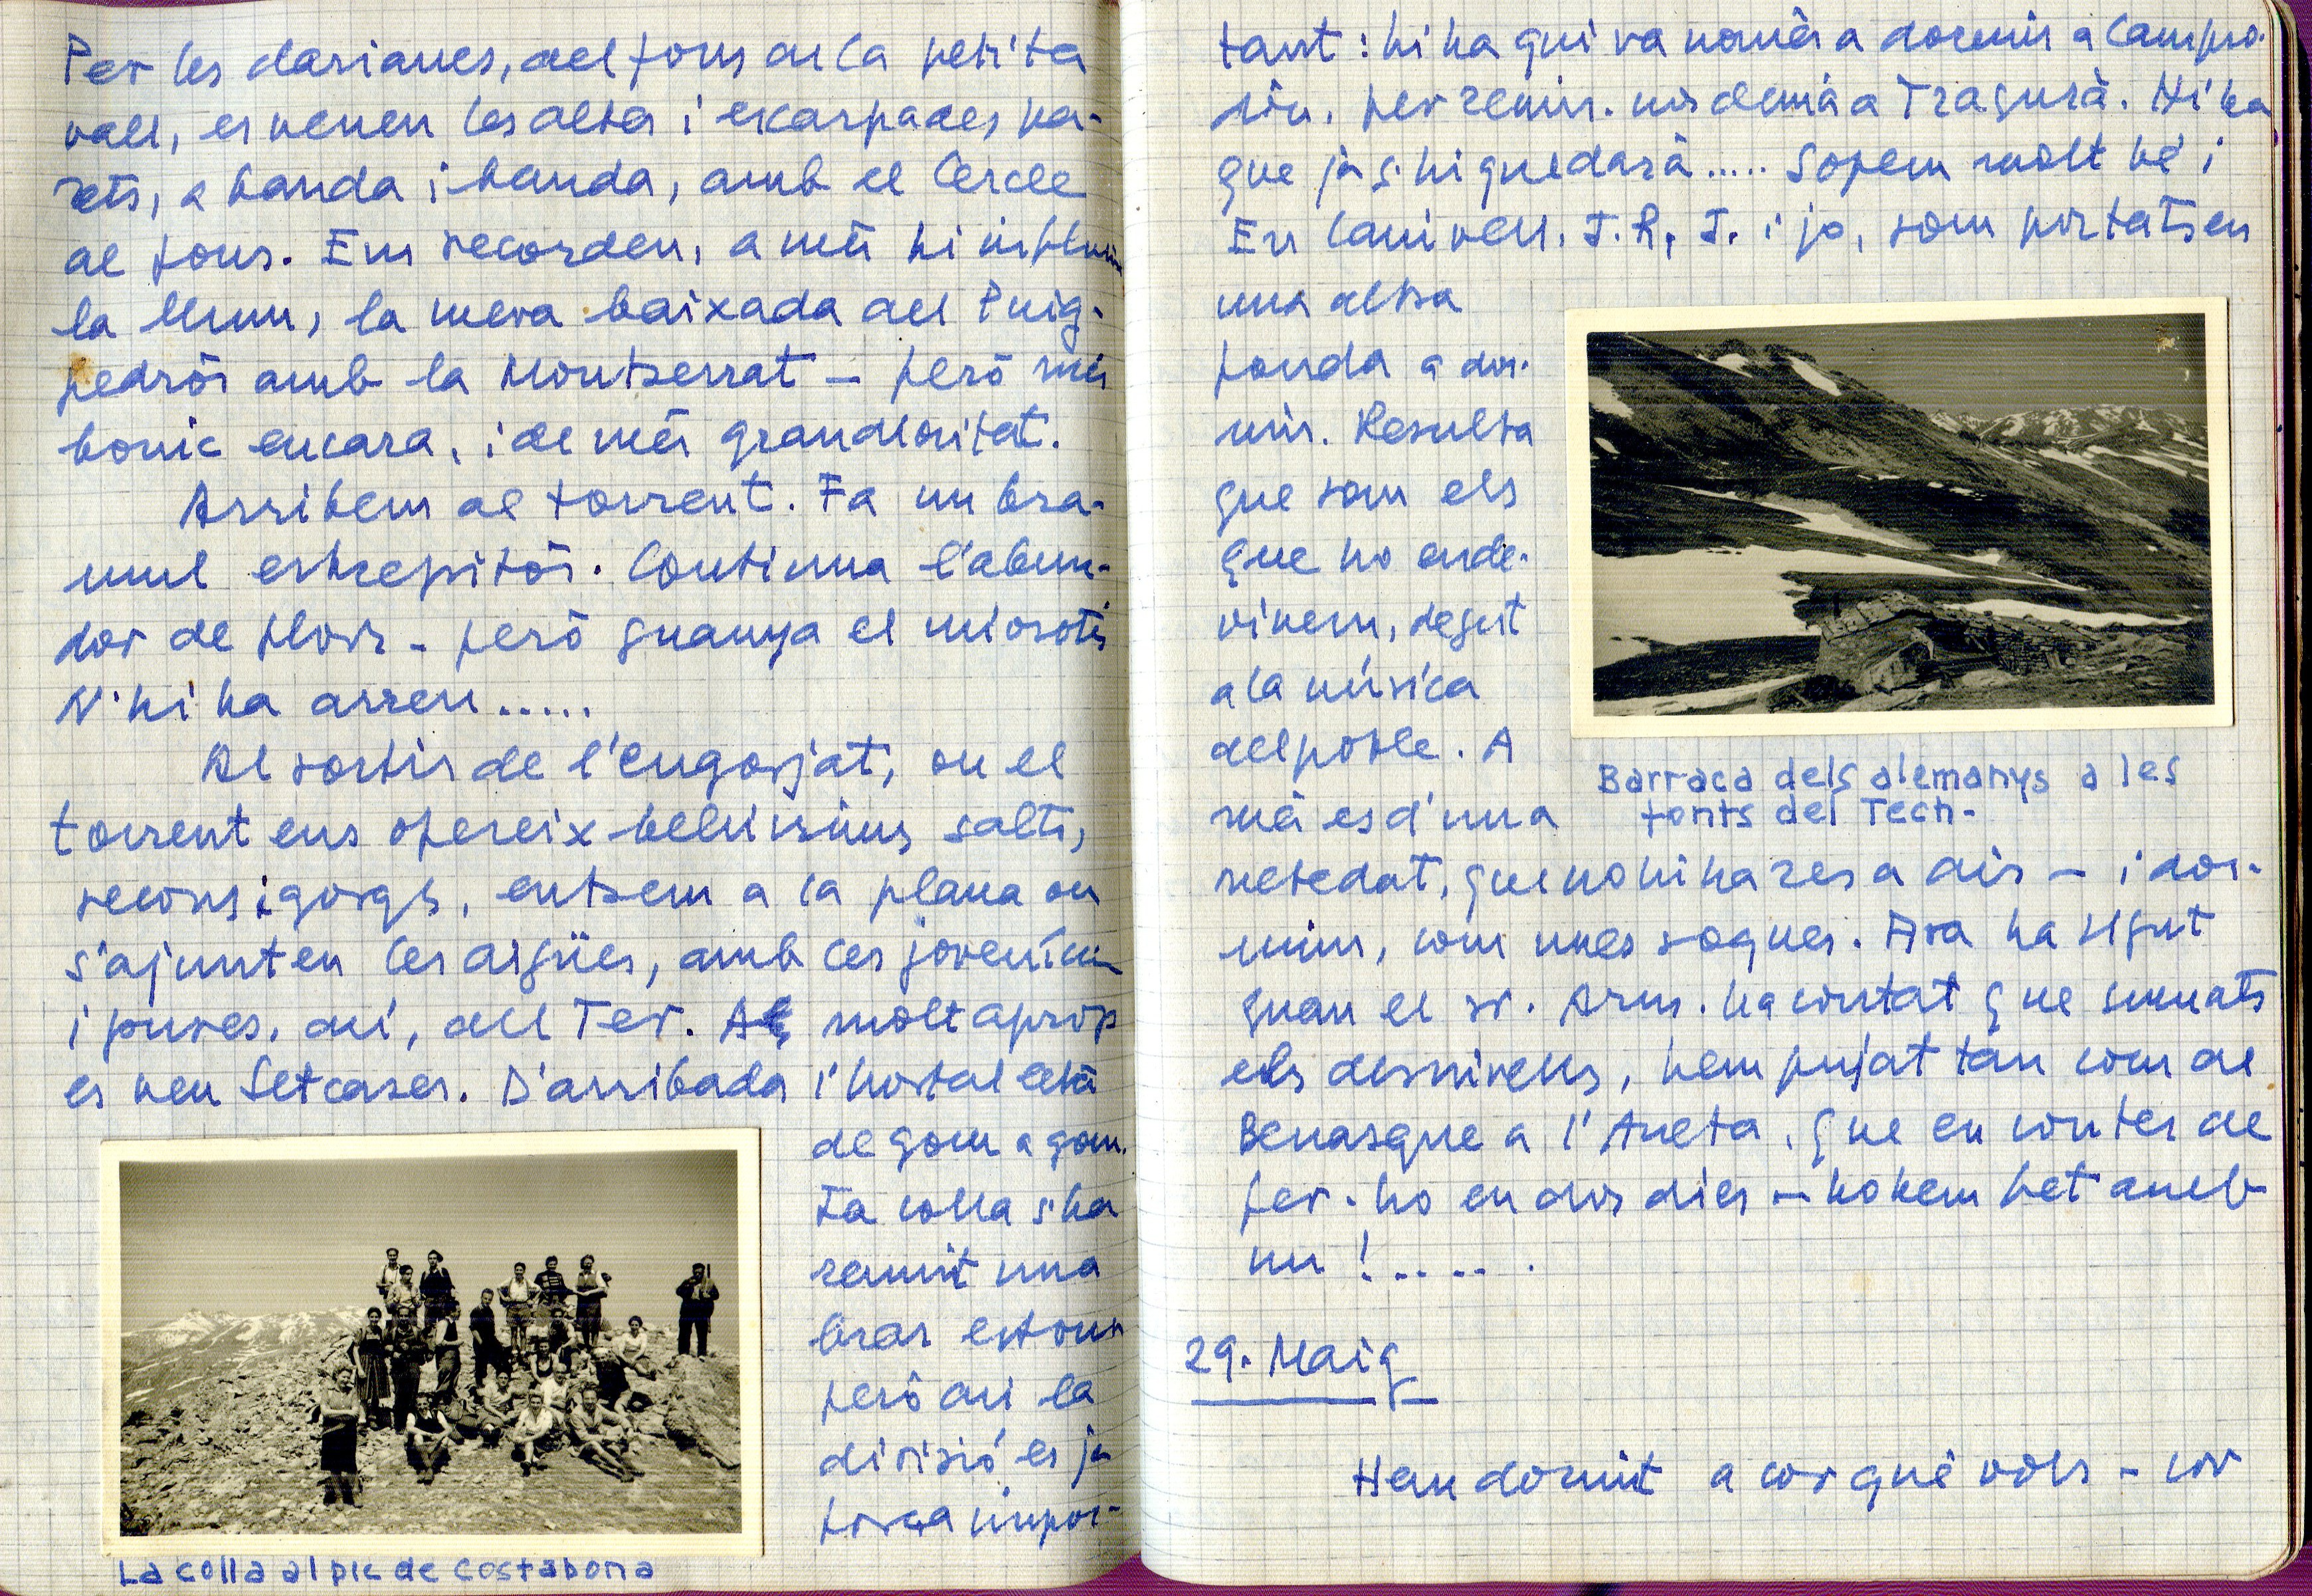 Per les clarianes, del fons de la petita
vall, es veuen les altes i escarpades pa-
rets, a banda i banda, amb el Cercle
al fons. Em recorden, a més hi influeix
la llum, la meva baixada del Puig-
pedrós amb la Montserrat – però més
bonic encara, i de més grandiositat.
Arribem al torrent. Fa un bra-
mul estrepitós. Continua l'abun-
dor de flors – però guanya el miosotis
N'hi ha arreu.....
Al sortir de l'engorjat, on el
torrent ens ofereix bellíssims salts,
recons i gorgs, entrem a la plana on
s'ajunten les aigües, amb les joveníssimes
i pures, ací, del Ter. molt aprop
es veu Setcases. D'arribada l'hostal està
de gom a gom.
La colla s'ha
reunit una
bras estona
però ací la
divisió es ja
força impor-
La colla al pic de Costabona
tant: hi ha qui va només a dormir a Campro-
dón, per reunir-nos demà a Tragurà. Hi ha
que ja s'hi quedarà..... Sopem molt bé i
En Canivell, J.R, J. i jo, som portats en
una altra
fonda a dor-
mir. Resulta
que som els
que ho ende-
vinem, degut
a la música
del poble. A
més es d'una
netedat, que no hi ha res a dir – i dor-
mim, com unes soques. Ara ha sigut
quan el sr. Arm. ha contat que sumats
els desnivells, hem pujat tan com de
Benasque a l'Aneto, que en contes de
fer-ho en dos dies – ho hem fet amb
un !.....
Barraca dels alemanys a les
fonts del Tech.
29. Maig
Hem dormit a cor què vols – cor